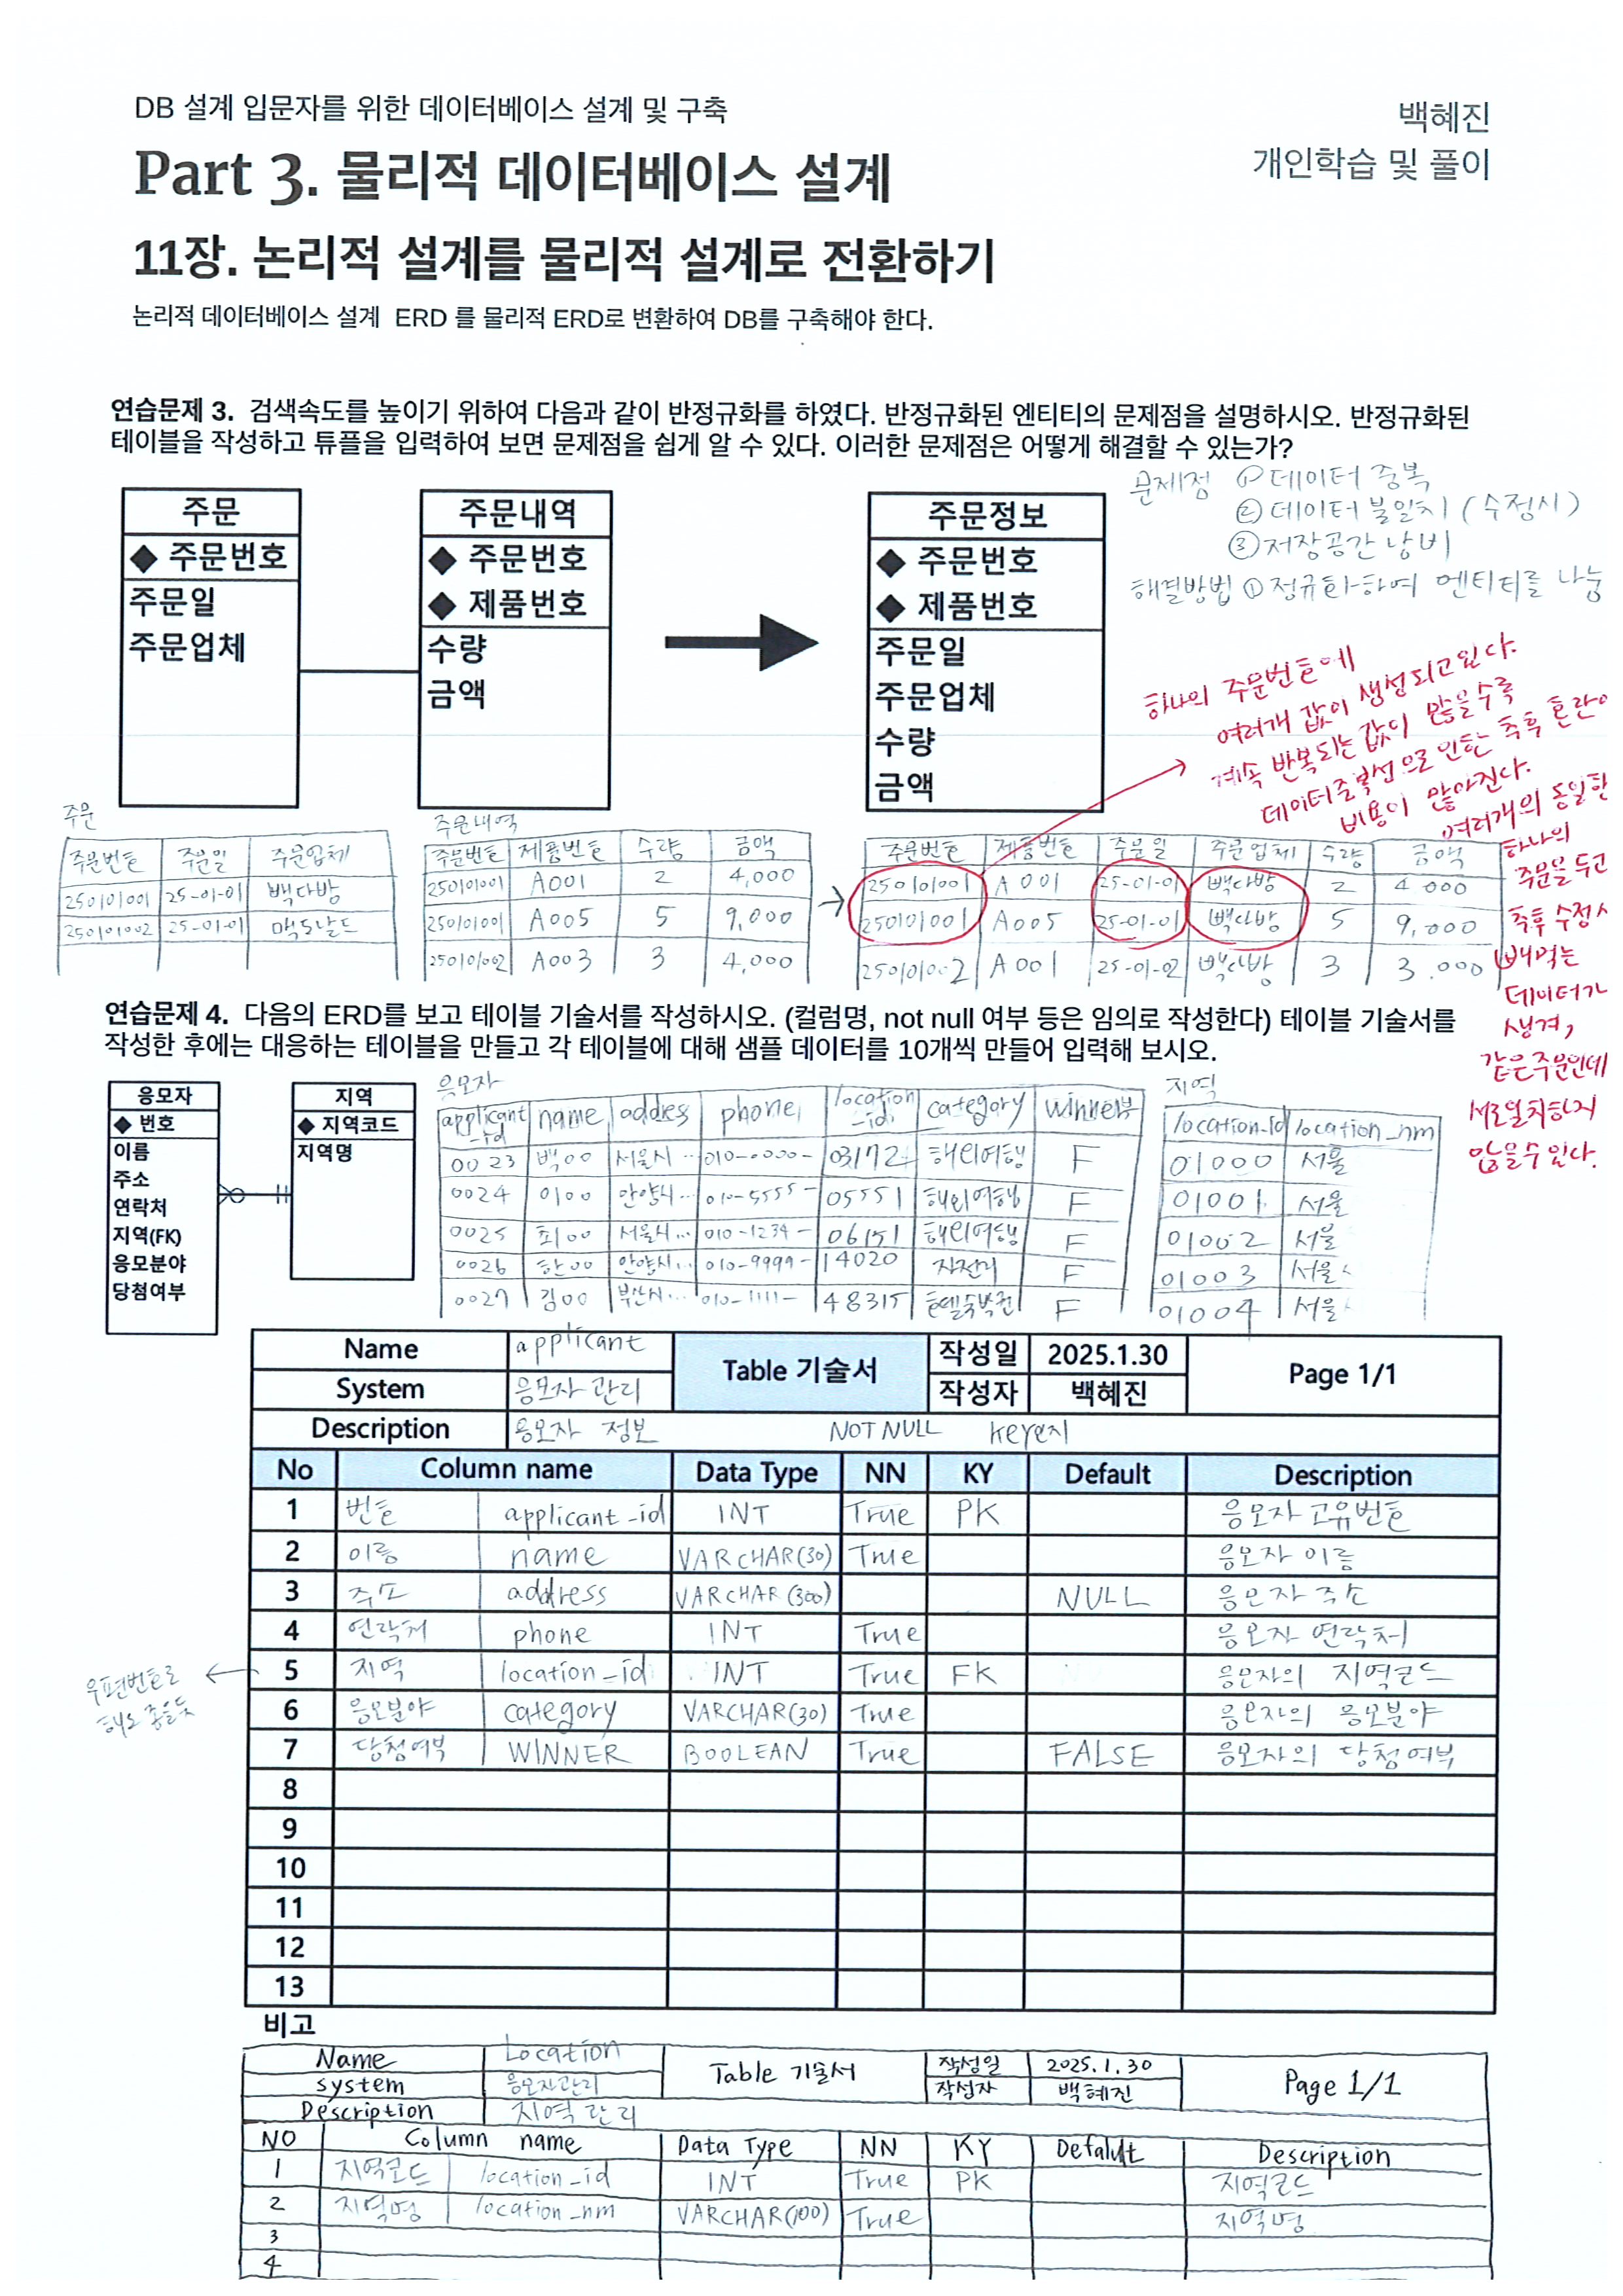 DB 설계 입문자를 위한 데이터베이스 설계 및 구축
백혜진
Part 3. 물리적 데이터베이스 설계
개인학습 및 풀이
11장. 논리적 설계를 물리적 설계로 전환하기
논리적 데이터베이스 설계 ERD 를 물리적 ERD로 변환하여 DB를 구축해야 한다.
연습문제 3. 검색속도를 높이기 위하여 다음과 같이 반정규화를 하였다. 반정규화된 엔티티의 문제점을 설명하시오. 반정규화된
테이블을 작성하고 튜플을 입력하여 보면 문제점을 쉽게 알 수 있다. 이러한 문제점은 어떻게 해결할 수 있는가?
문제점 ① 데이터 중복
② 데이터 불일치 (수정시)
③ 저장공간 낭비
해결방법 ① 정규화하여 엔티티를 나눔
주문
◆ 주문번호
주문일
주문업체
주문내역
◆ 주문번호
◆ 제품번호
수량
금액
주문정보
◆ 주문번호
◆ 제품번호
주문일
주문업체
수량
금액
하나의 주문번호에
여러개 값이 생성되고있다.
계속 반복되는 값이 많을수록
데이터중복성으로 인한 추후 혼란
비용이 많아진다.
여러개의 동일한
하나의
주문을 두고
추후 수정시
빼먹는
데이터가
생겨,
같은주문인데
서로일치하지
않을수있다.
주문
주문번호 주문일 주문업체
250101001 25-01-01 빽다방
250101002 25-01-01 맥도날드
주문내역
주문번호 제품번호 수량 금액
250101001 A001 2 4,000
250101001 A005 5 9,000
250101002 A003 3 4,000
주문번호 제품번호 주문일 주문업체 수량 금액
250101001 A001 25-01-01 빽다방 2 4000
250101001 A005 25-01-01 빽다방 5 9,000
250101002 A001 25-01-02 빽다방 3 3.000
연습문제 4. 다음의 ERD를 보고 테이블 기술서를 작성하시오. (컬럼명, not null 여부 등은 임의로 작성한다) 테이블 기술서를
작성한 후에는 대응하는 테이블을 만들고 각 테이블에 대해 샘플 데이터를 10개씩 만들어 입력해 보시오.
응모자
◆ 번호
이름
주소
연락처
지역(FK)
응모분야
당첨여부
지역
◆ 지역코드
지역명
응모자
applicant_id name addres phone location_id category winner
0023 백00 서울시 ··· 010-0000- 03172 해외여행 F
0024 이00 안양시··· 010-5555- 05551 해외여행 F
0025 최00 서울시··· 010-1234- 06151 해외여행 F
0026 한00 안양시··· 010-9999- 14020 자전거 F
0027 김00 부산시··· 010-1111- 48315 호텔숙박권 F
지역
location_id location_nm
01000 서울
01001 서울
01002 서울
01003 서울
01004 서울
Name applicant Table 기술서 작성일 2025.1.30 Page 1/1
System 응모자 관리 작성자 백혜진
Description 응모자 정보 NOT NULL
No Column name Data Type NN KY Default Description
1 번호 applicant_id INT True PK 응모자 고유번호
2 이름 name VARCHAR(30) True 응모자 이름
3 주소 address VARCHAR(300) NULL 응모자 주소
4 연락처 phone INT True 응모자 연락처
5 지역 location_id INT True FK 응모자의 지역코드
6 응모분야 category VARCHAR(30) True 응모자의 응모분야
7 당첨여부 WINNER BOOLEAN True FALSE 응모자의 당첨여부
우편번호로
해도 좋을듯
8
9
10
11
12
13
비고
Name Location Table 기술서 작성일 2025.1.30 Page 1/1
system 응모자관리 작성자 백혜진
Description 지역 관리
NO Column name Data Type NN KY Defalult Description
1 지역코드 location_id INT True PK 지역코드
2 지역명 location_nm VARCHAR(100) True 지역명
3
4